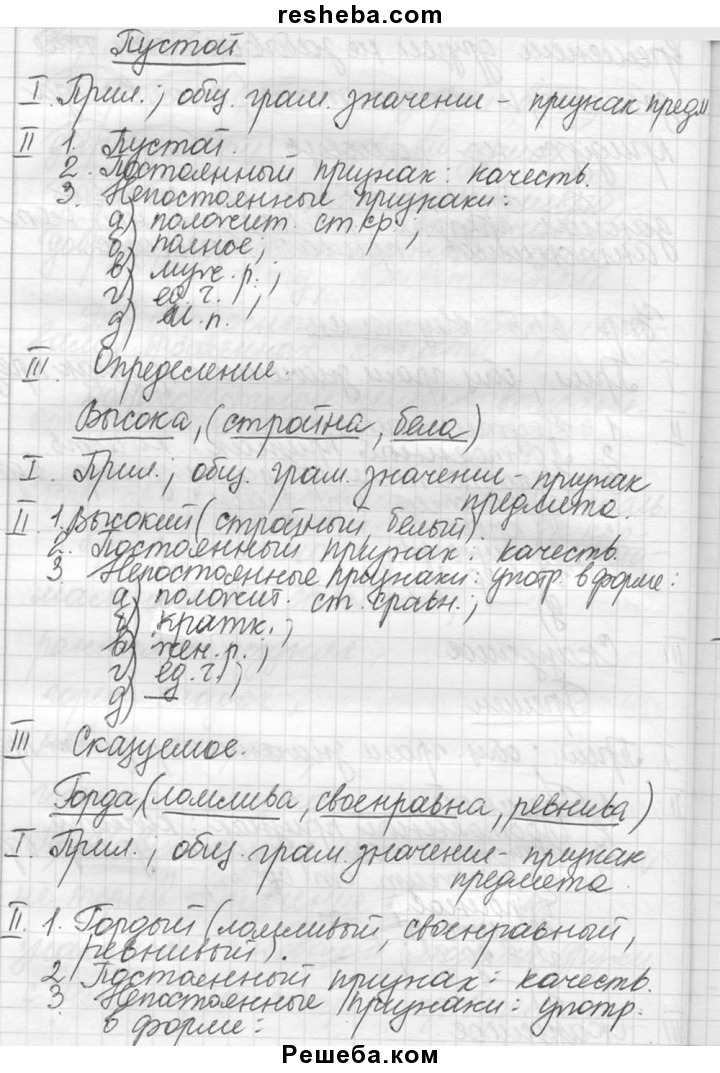 resheba.com
Пустой
I. Прил.; общ. грам. значение - признак предм
II 1. Пустой.
2. Постоянный признак: качеств.
3. Непостоянные признаки:
а) положит. ст. ср.;
б) полное;
в) муж. р.;
г) ед. ч.;
д) им. п.
III. Определение.
Высока, (стройна, бела)
I. Прил.; общ. грам. значение - признак
предмета.
II. 1. Высокий (стройный, белый)
2. Постоянный признак: качеств.
3. Непостоянные признаки: употр. в форме:
а) положит. ст. сравн.;
б) кратк.;
в) жен. р.;
г) ед. ч.;
д) —
III Сказуемое.
Горда, (ломлива, своенравна, ревнива)
I. Прил.; общ. грам. значение - признак
предмета
II. 1. Гордый (ломливый, своенравный,
ревнивый).
2. Постоянный признак: качеств.
3. Непостоянные признаки: употр.
в форме:
Решеба.ком